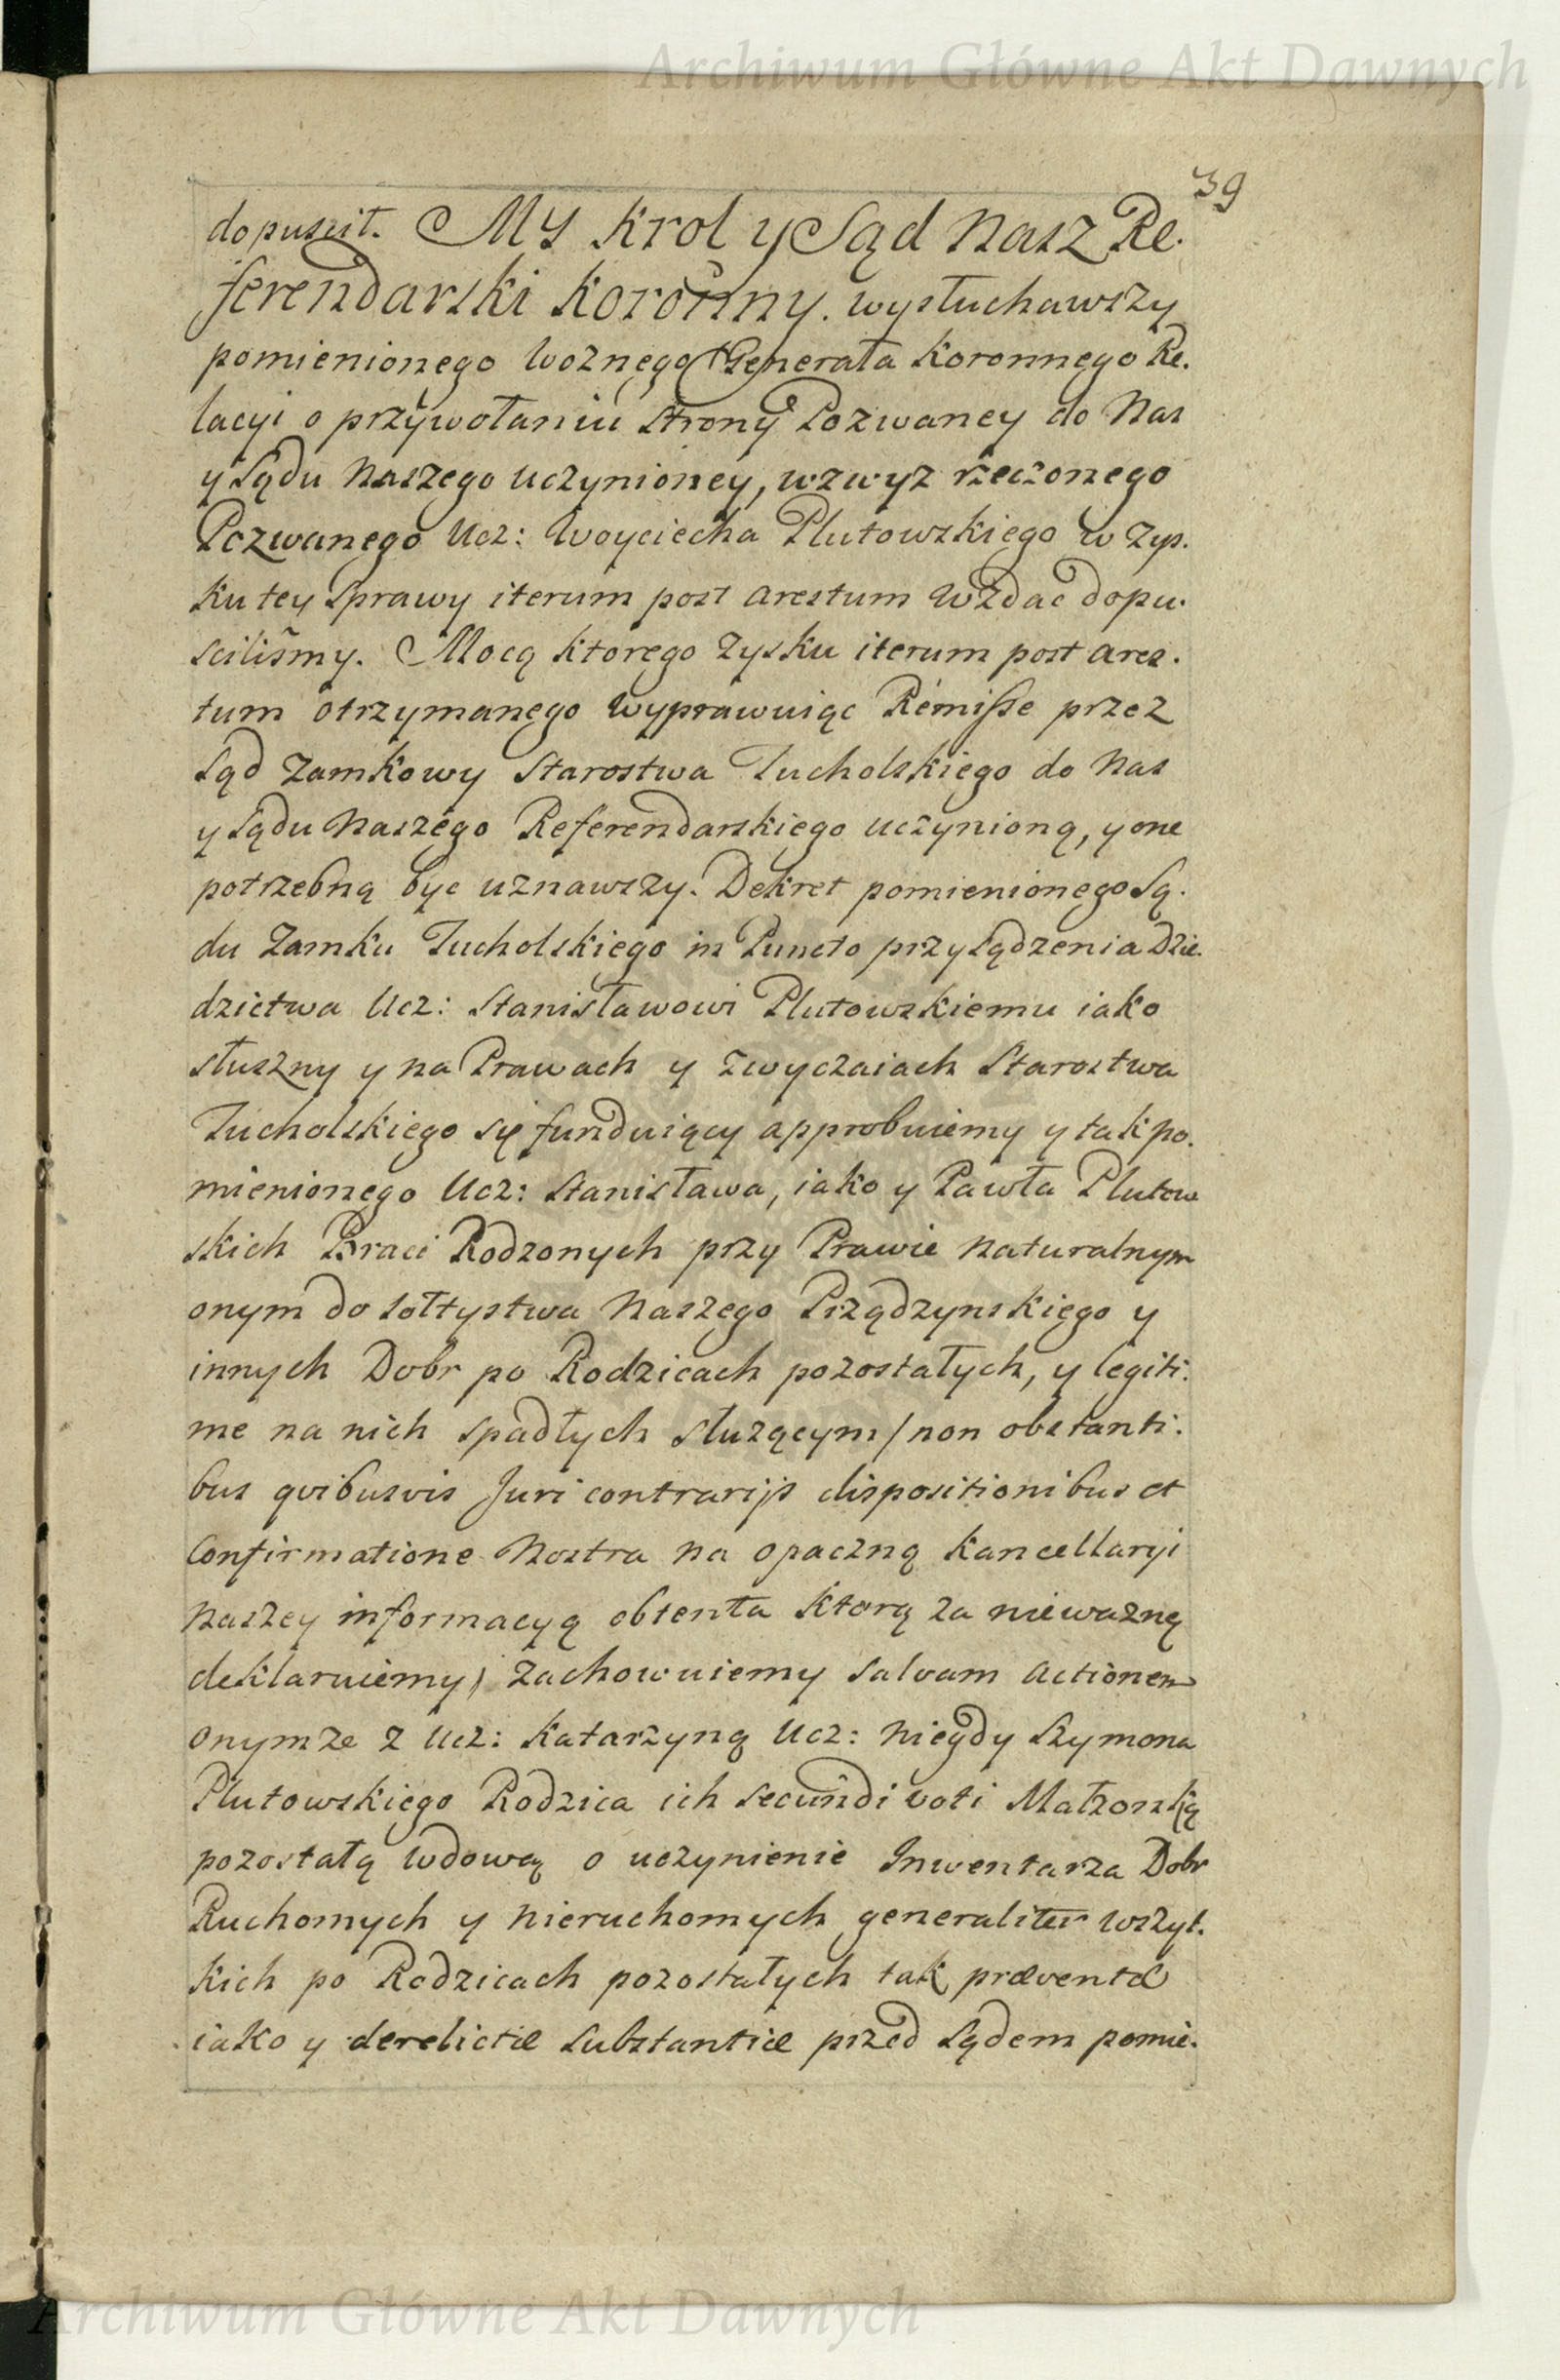 Archiwum Główne Akt Dawnych
39
dopuscił. My Krol y Sąd Nasz Re.
ferendarski Koronny. wysłuchawszy
pomienionego Woznego Generała Koronnego Re.
lacyi o przywołaniu strony Pozwaney do Nas
y Sądu Naszego uczynioney, wzwyz rzeczonego
Pozwanego Ucz: Woyciecha Plutowskiego w zys.
ku tey Sprawy iterum post arestum wzdac dopu.
scilismy. Mocą ktorego zysku iterum post ares.
tum otrzymanego wyprawuiąc Remisse przez
Sąd Zamkowy Starostwa Tucholskiego do Nas
y Sądu Naszego Referendarskiego uczynioną, y one
potrzebną byc uznawszy. Dekret pomienionego Są.
du Zamku Tucholskiego in Puncto przysądzenia Dzie.
dzictwa Ucz: Stanisławowi Plutowskiemu iako
słuszny y na Prawach y zwyczaiach Starostwa
Tucholskiego się funduiący approbuiemy y tak po.
mienionego Ucz: Stanisława, iako y Pawła Plutow
skich Braci Rodzonych przy Prawie naturalnym
onym do Sołtystwa Naszego Prządzynskiego y
innych Dobr po Rodzicach pozostałych, y legiti.
me na nich spadłych słuzącym / non obstanti.
bus qvibusvis Juri contrarijs dispositionibus et
Confirmatione Nostra na opaczną Kancellaryi
Naszey informacyą obtenta ktorą za niewazną
deklaruiemy) zachowuiemy salvam actionem
onymze z Ucz: Katarzyną Ucz: niegdy Szymona
Plutowskiego Rodzica ich secundi voti Małzonką
pozostałą wdową o uczynienie Inwentarza Dobr
Ruchomych y nieruchomych generaliter wszyt.
kich po Rodzicach pozostałych tak præventæ
iako y derelictæ substantiæ przed Sądem pomie.
Archiwum Główne Akt Dawnych